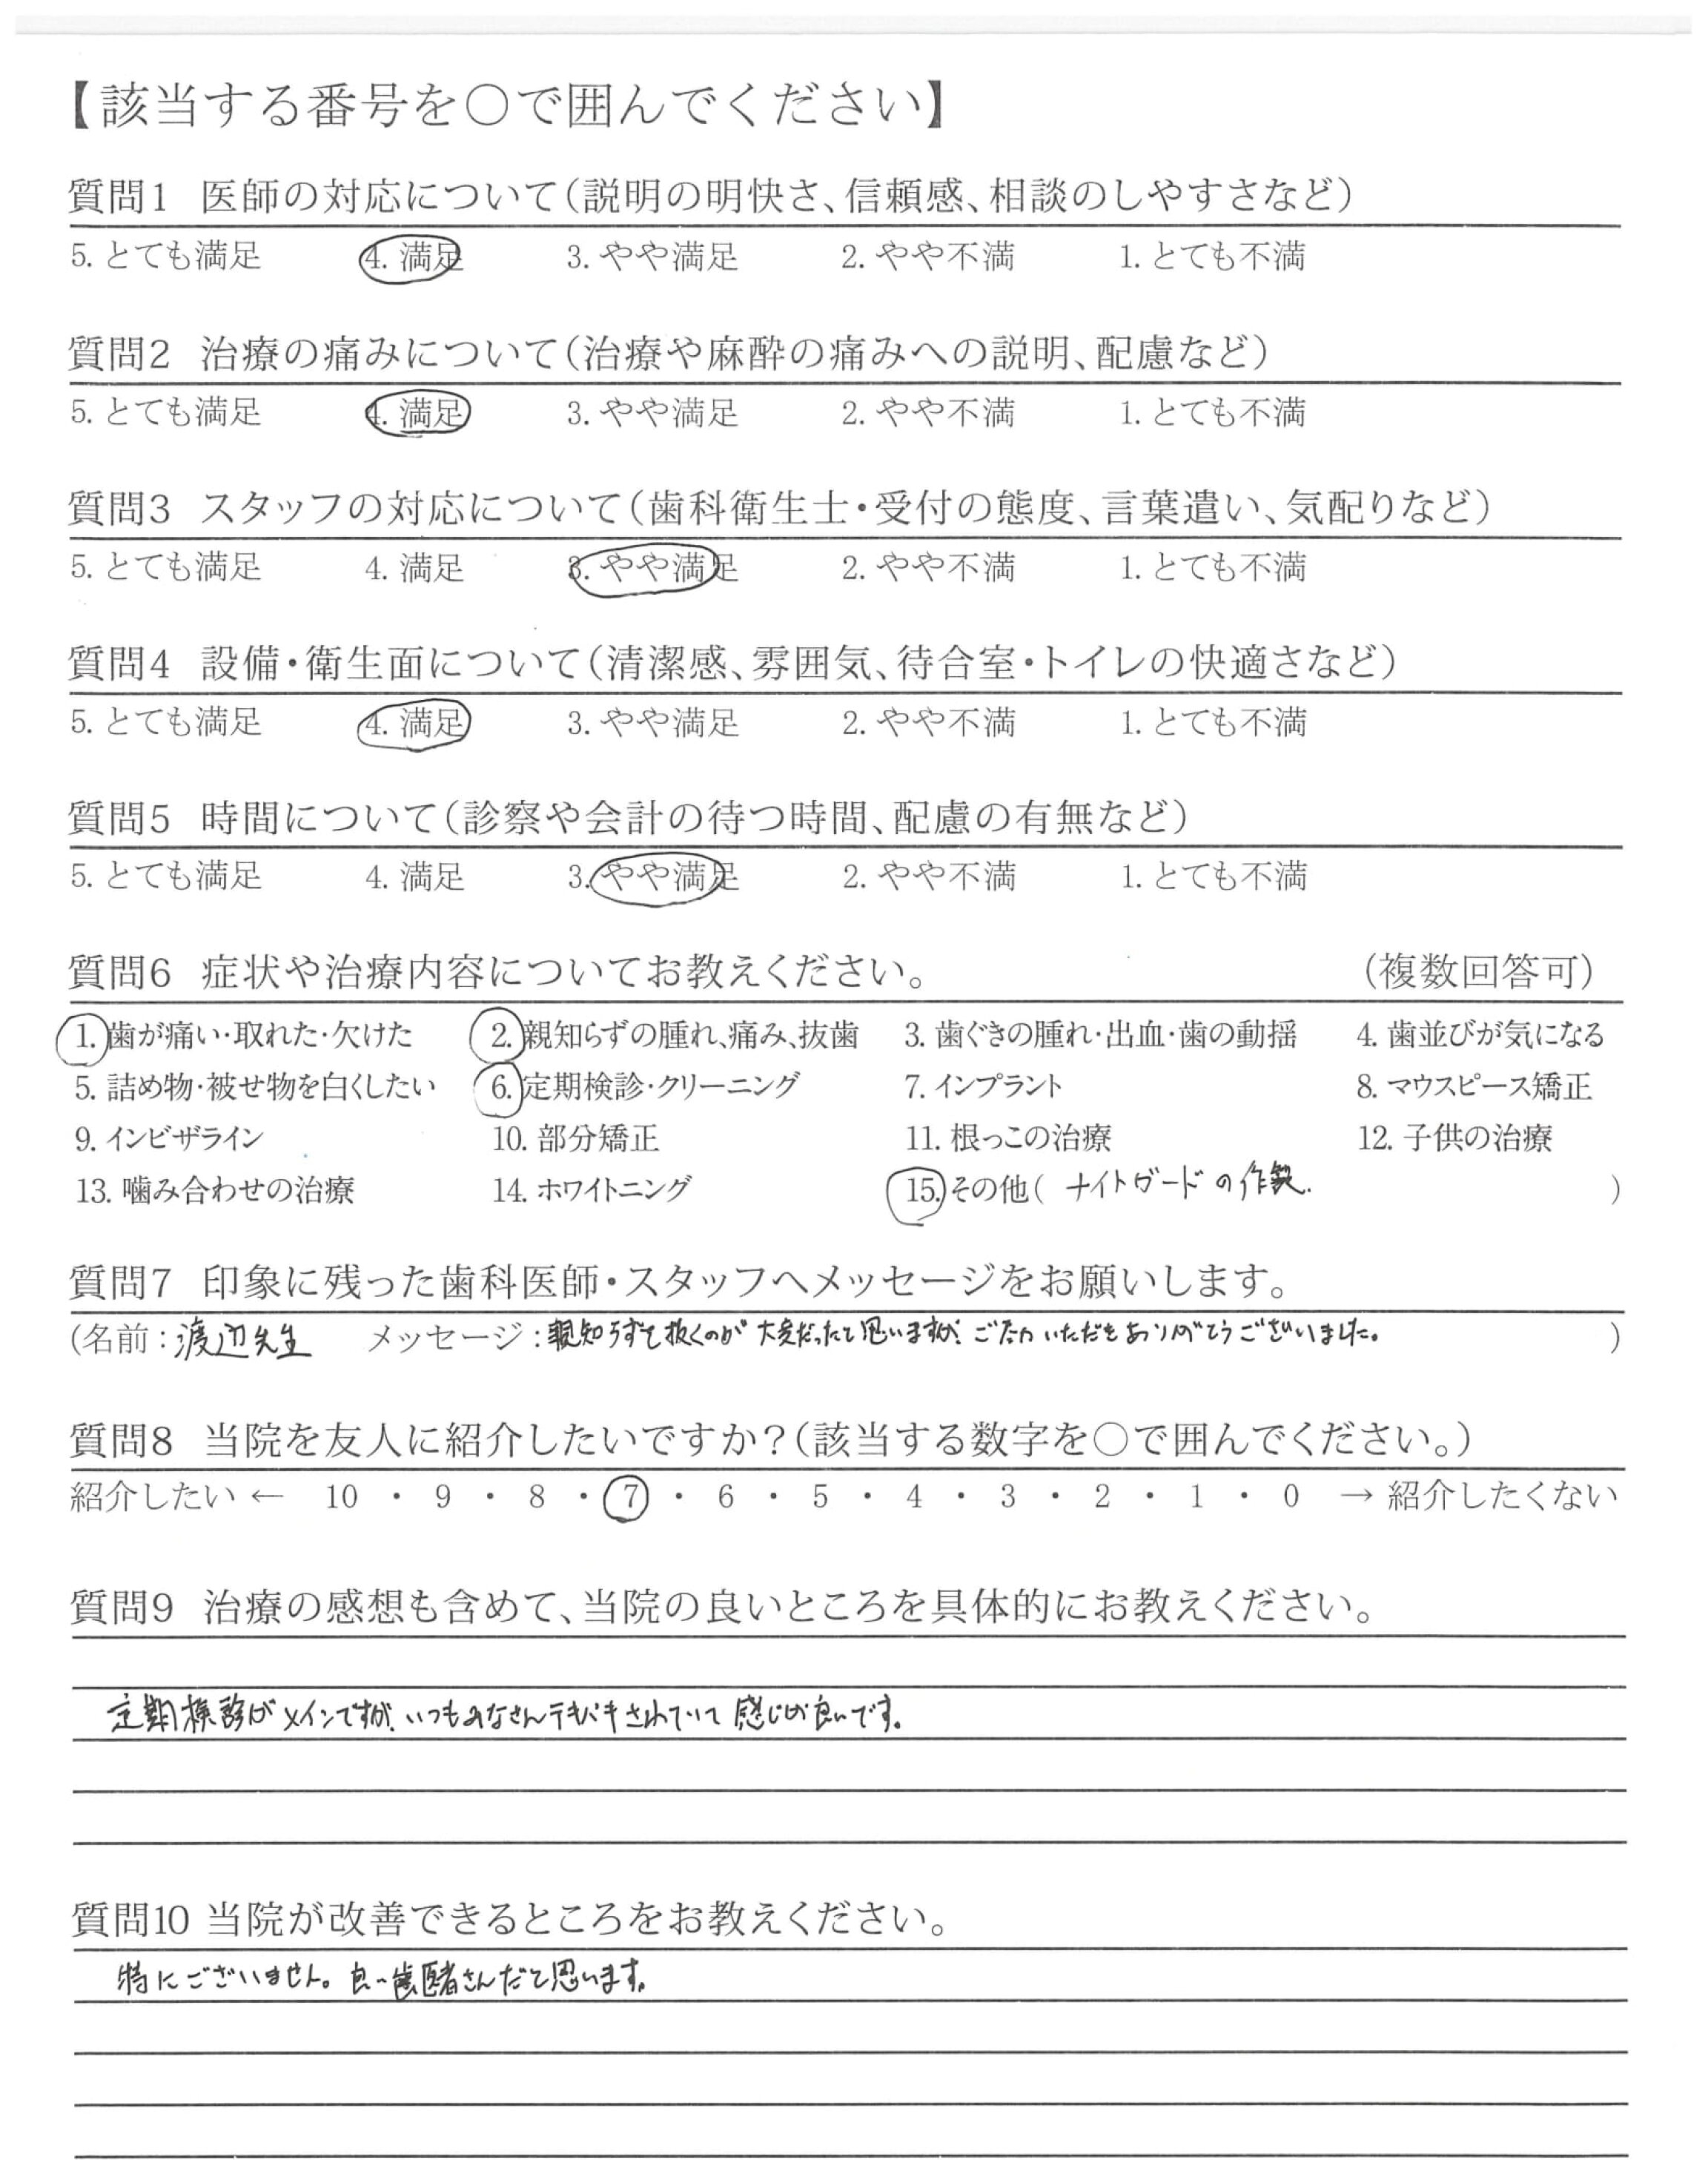 【該当する番号を○で囲んでください】
質問1 医師の対応について(説明の明快さ、信頼感、相談のしやすさなど)
5. とても満足 4. 満足 3. やや満足 2. やや不満 1. とても不満
質問2 治療の痛みについて(治療や麻酔の痛みへの説明、配慮など)
5. とても満足 4. 満足 3. やや満足 2. やや不満 1. とても不満
質問3 スタッフの対応について(歯科衛生士・受付の態度、言葉遣い、気配りなど)
5. とても満足 4. 満足 3. やや満足 2. やや不満 1. とても不満
質問4 設備・衛生面について(清潔感、雰囲気、待合室・トイレの快適さなど)
5. とても満足 4. 満足 3. やや満足 2. やや不満 1. とても不満
質問5 時間について(診察や会計の待つ時間、配慮の有無など)
5. とても満足 4. 満足 3. やや満足 2. やや不満 1. とても不満
質問6 症状や治療内容についてお教えください。 (複数回答可)
1. 歯が痛い・取れた・欠けた 2. 親知らずの腫れ、痛み、抜歯 3. 歯ぐきの腫れ・出血・歯の動揺 4. 歯並びが気になる
5. 詰め物・被せ物を白くしたい 6. 定期検診・クリーニング 7. インプラント 8. マウスピース矯正
9. インビザライン 10. 部分矯正 11. 根っこの治療 12. 子供の治療
13. 噛み合わせの治療 14. ホワイトニング 15. その他( ナイトガードの作製. )
質問7 印象に残った歯科医師・スタッフへメッセージをお願いします。
(名前:渡辺先生 メッセージ:親知らずを抜くのが大変だったと思いますが、ご尽力いただきありがとうございました。 )
質問8 当院を友人に紹介したいですか?(該当する数字を○で囲んでください。)
紹介したい ← 10 ・ 9 ・ 8 ・ 7 ・ 6 ・ 5 ・ 4 ・ 3 ・ 2 ・ 1 ・ 0 → 紹介したくない
質問9 治療の感想も含めて、当院の良いところを具体的にお教えください。
定期検診がメインですが、いつもみなさんテキパキされていて感じが良いです。
質問10 当院が改善できるところをお教えください。
特にございません。良い歯医者さんだと思います。